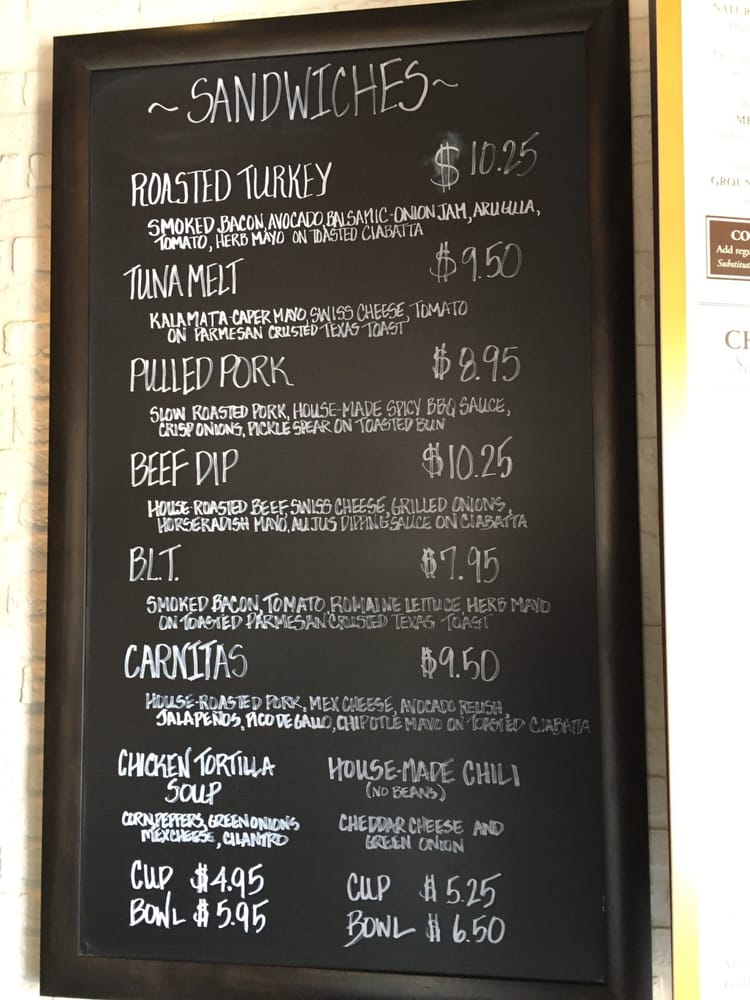 ~SANDWICHES~
ROASTED TURKEY $10.25
SMOKED BACON, AVOCADO, BALSAMIC-ONION JAM, ARUGULA,
TOMATO, HERB MAYO ON TOASTED CIABATTA
TUNA MELT $9.50
KALAMATA-CAPER MAYO, SWISS CHEESE, TOMATO
ON PARMESAN CRUSTED TEXAS TOAST
PULLED PORK $8.95
SLOW ROASTED PORK, HOUSE-MADE SPICY BBQ SAUCE,
CRISP ONIONS, PICKLE SPEAR ON TOASTED BUN
BEEF DIP $10.25
HOUSE-ROASTED BEEF, SWISS CHEESE, GRILLED ONIONS,
HORSERADISH MAYO, AU JUS DIPPING SAUCE ON CIABATTA
B.L.T. $7.95
SMOKED BACON, TOMATO, ROMAINE LETTUCE, HERB MAYO
ON TOASTED PARMESAN CRUSTED TEXAS TOAST
CARNITAS $9.50
HOUSE-ROASTED PORK, MEX CHEESE, AVOCADO RELISH,
JALAPEÑOS, PICO DE GALLO, CHIPOTLE MAYO ON TOASTED CIABATTA
CHICKEN TORTILLA
SOUP
CORN, PEPPERS, GREEN ONIONS
MEX CHEESE, CILANTRO
CUP $4.95
BOWL $5.95
HOUSE-MADE CHILI
(NO BEANS)
CHEDDAR CHEESE AND
GREEN ONION
CUP $5.25
BOWL $6.50
GROUN
CO
Add
Substitu